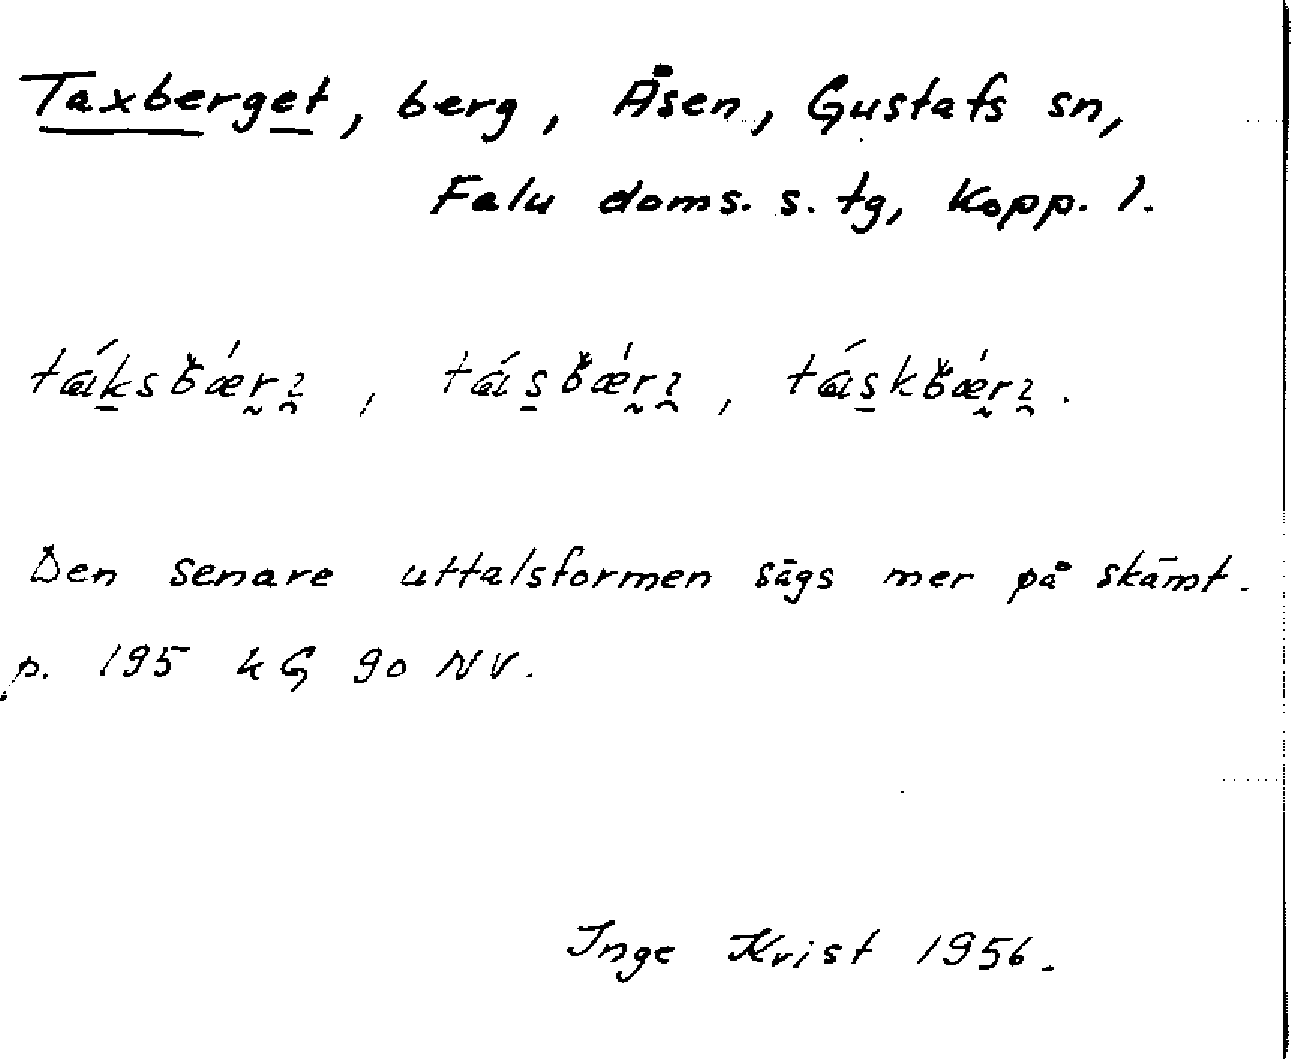 Taxberget, berg, Åsen, Gustafs sn,
Falu doms. s. tg, Kopp. l.
Den senare uttalsformen sägs mer på skämt.
p. 195 k G 90 NV.
Inge Krist 1956.